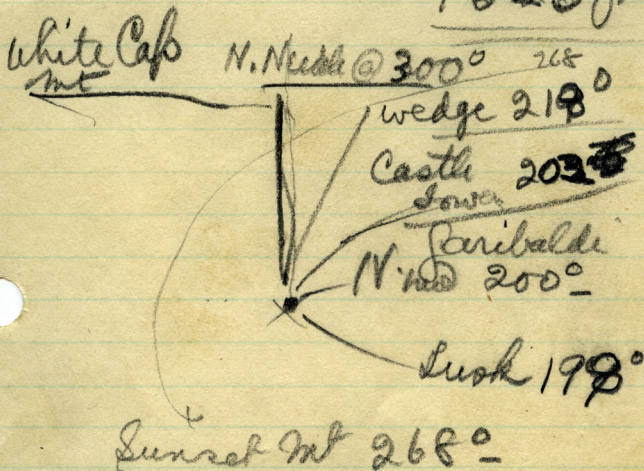 White Cap
Mt
N. Needle @ 300°
268
wedge 218°
Castle 203
Tower
Garibaldi
N. 200°
Lusk 198°
Sunset Mt 268°